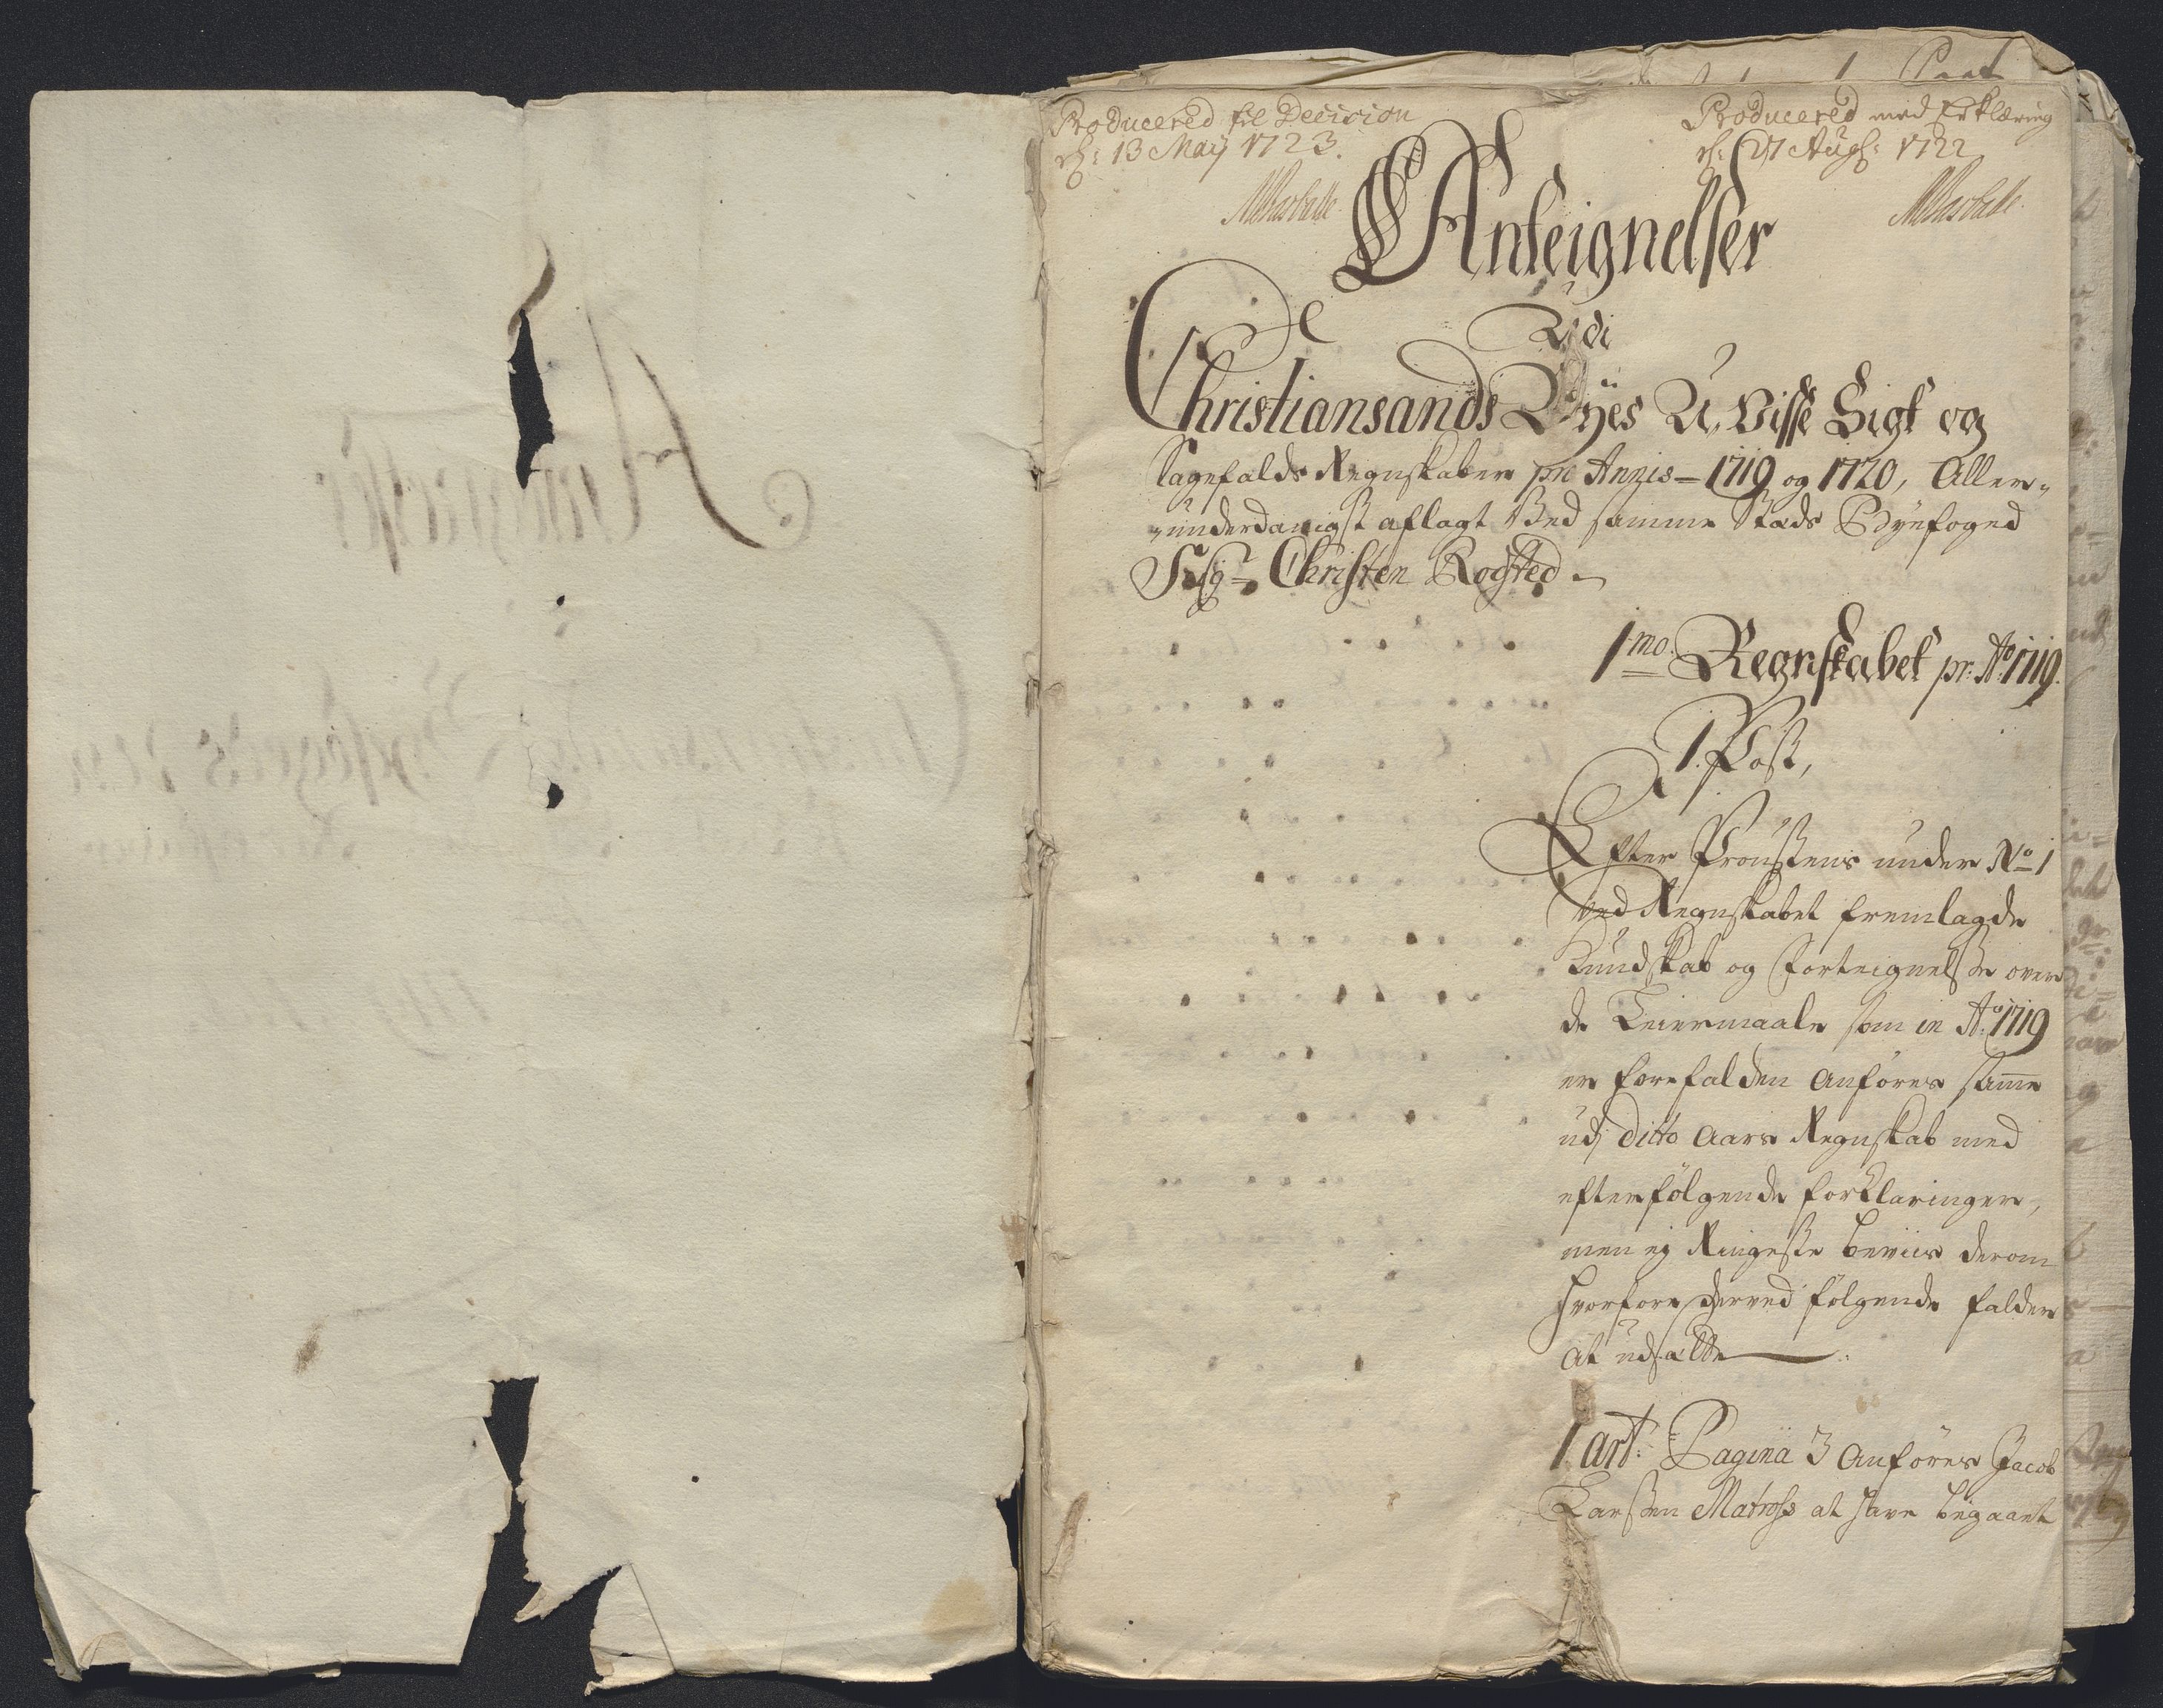 Producered til Decision
d: 13 Maÿ 1723.
Producered med Erklæring
d: 27 Augs: 1722
Anteignelser
Udi
Christiansands Bÿes U-Visse Sigt og
Sagefalds Regnskaber pro Annis - 1719 og 1720, Aller-
-underdanigst aflagt Ved samme Stads Bÿefoged
Sr Christen Rogsted -
1mo Regnskabet pr: Ao 1719.
1. Post,
Efter Proustens under No 1
Ved Regnskabet fremlagde
Kundskab og Forteignelse over
de Leiermaale som in Ao 1719
er forefalden anföres samme
udj ditto Aars Regnskab med
efterfölgende forklaringer,
men ej Ringeste beviis derom
hvorfore derved fölgende falder
at udsætte
1. art: Pagina 3 anföres Jacob
Larssen Matros at have begaaet